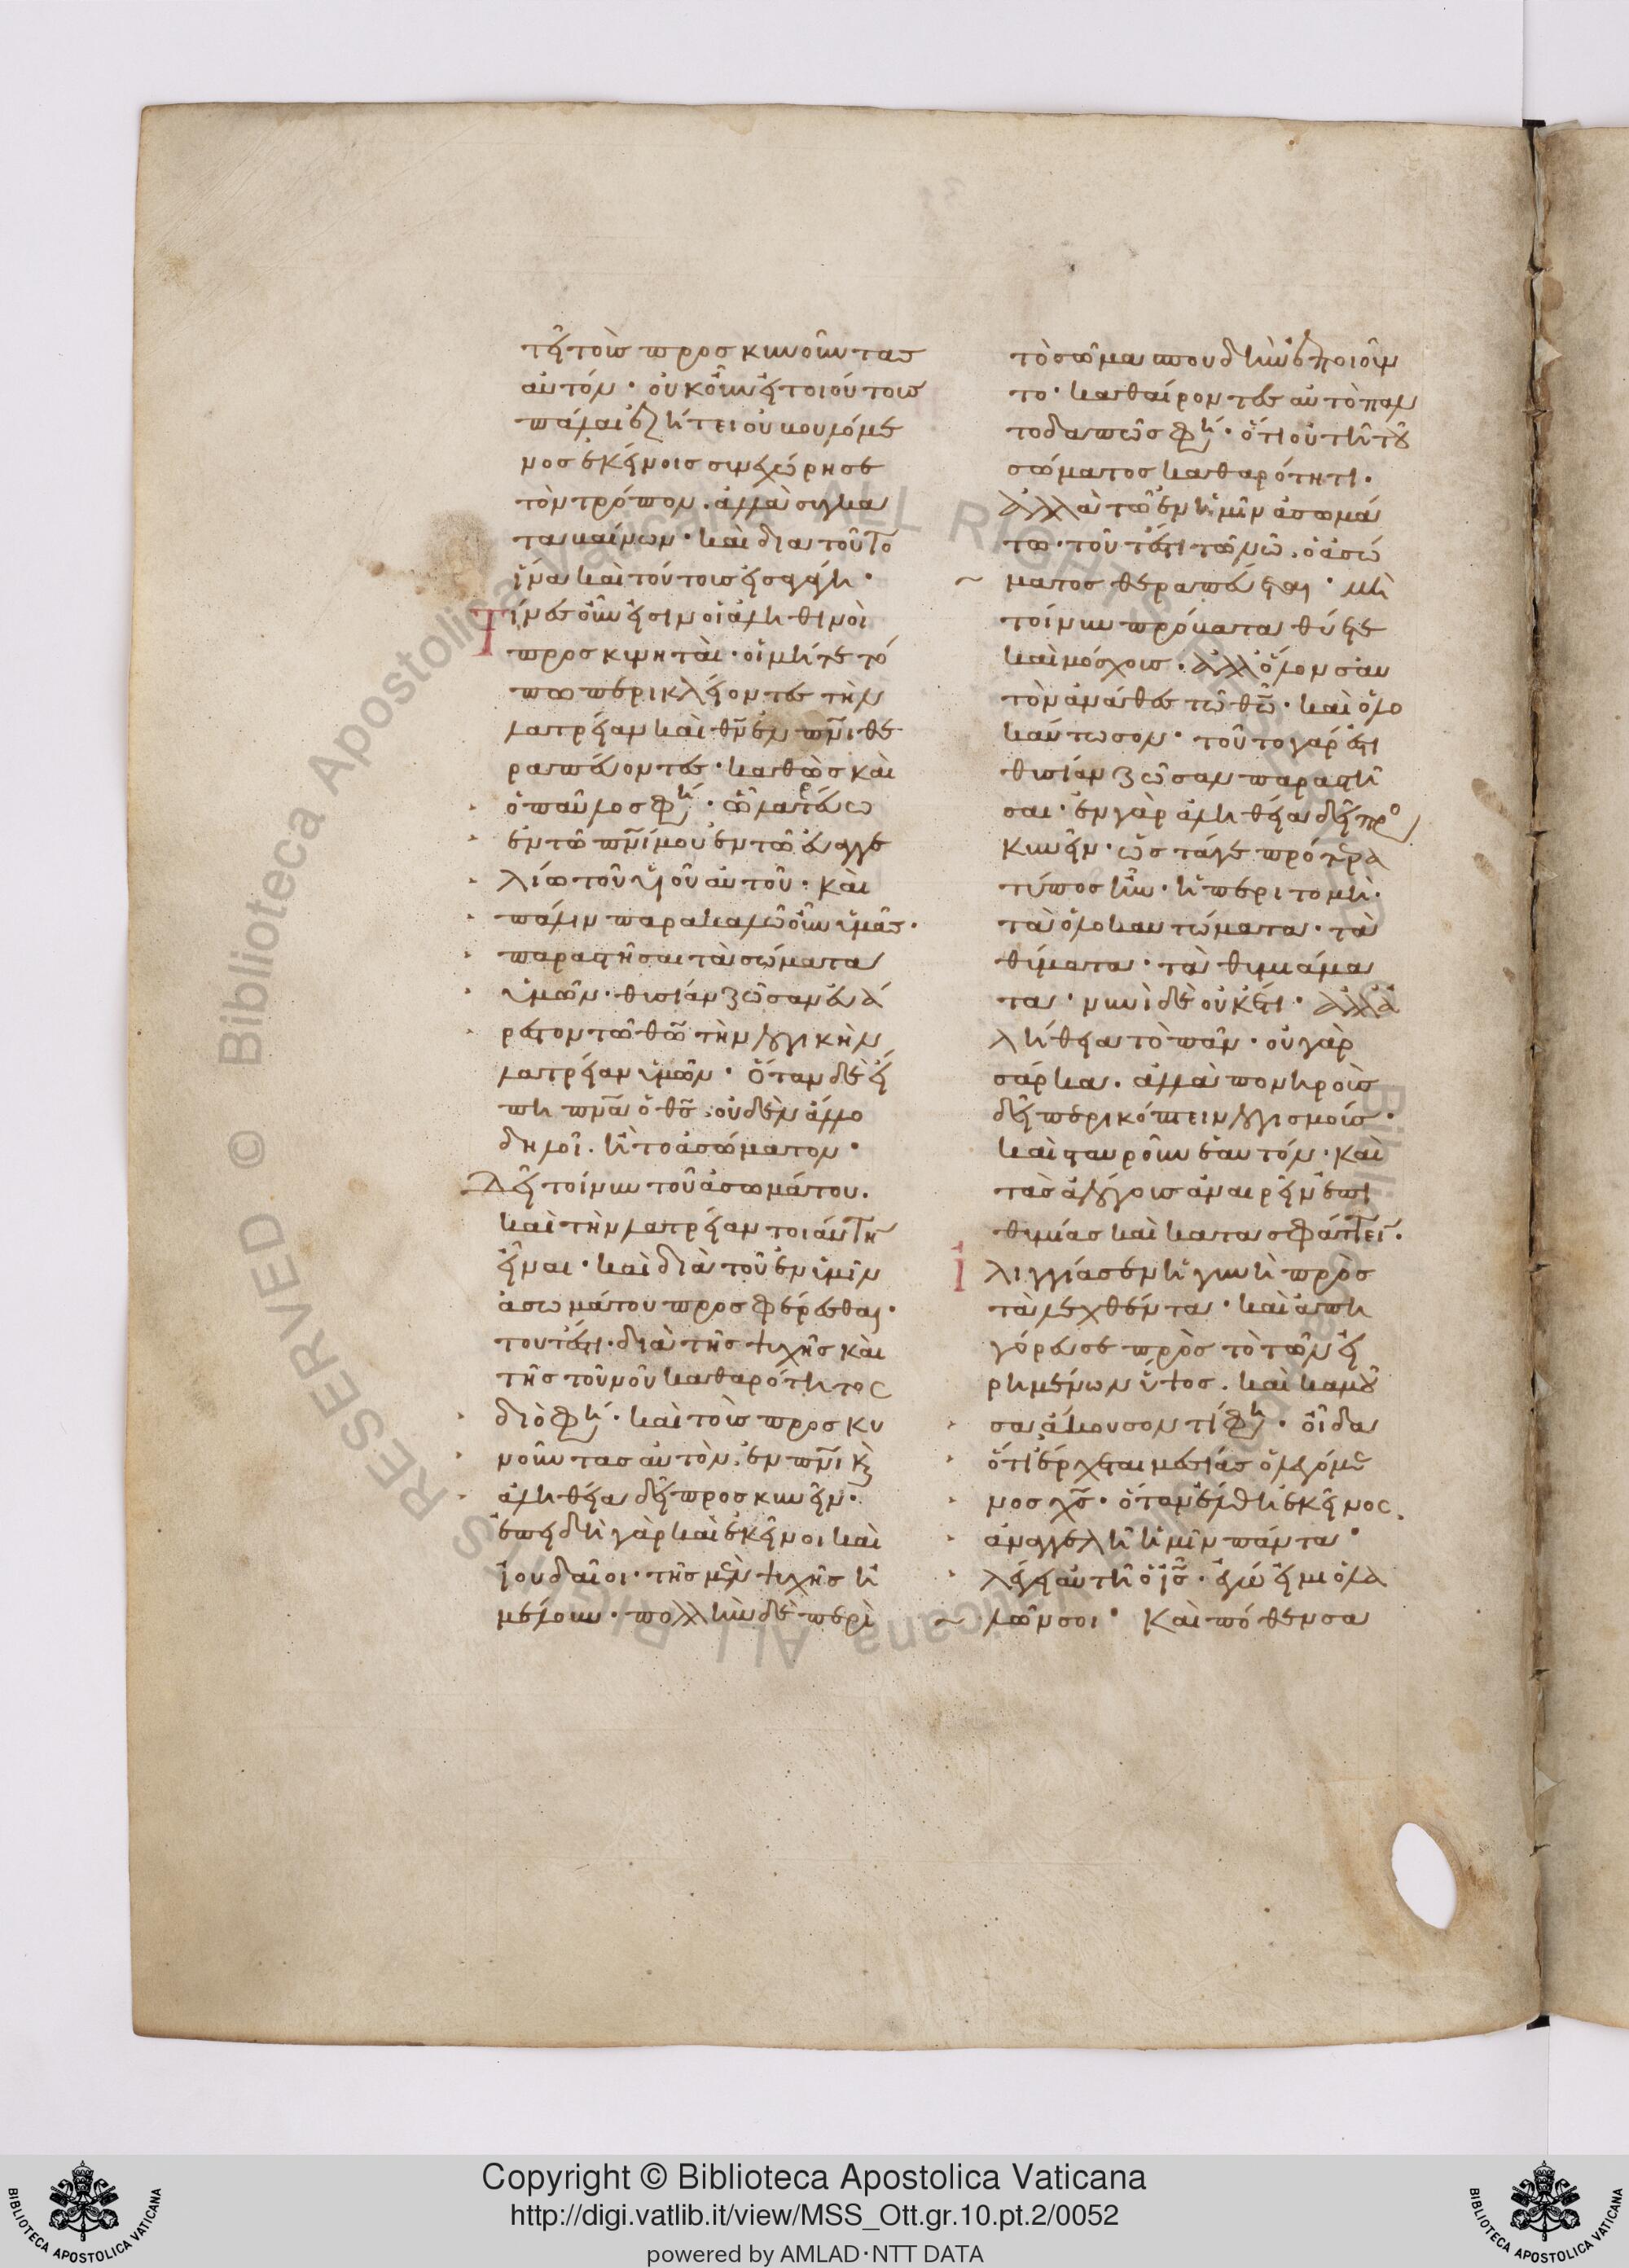 τεῖ τοὺς προσκυνοῦντας
αὐτόν· οὐκοῦν εἰ τοιούτους
πάλαι ἐζήτει οὐ βουλόμε
νος ἐκείνοις συνεχώρησε
τὸν τρόπον. ἀλλὰ συγκα
ταβαίνων· καὶ διατοῦτο
ἵνα καὶ τούτους εἰσαγάγη·
Τίνες οὖν εἰσιν οἱ ἀληθινοὶ
προσκυνηταί· οἱ μήτε τό
πω περικλείοντες τὴν
λατρείαν καὶ θν̄ ἐν πν̄ι θε
ραπεύοντες· καθὼς καὶ
ὁ παῦλος φη· ᾧ λατρεύω
ἐν τῶ πν̄ί μου ἐν τῶ εὐαγγε
λίω τοῦ υἱοῦ αὐτοῦ· καὶ
πάλιν παρακαλῶ οὖν ὑμᾶς·
παραστῆσαι τὰ σώματα
ὑμῶν· θυσίαν ζῶσαν εὐά
ρεστον τῶ θῶ τὴν λογικὴν
λατρείαν ὑμῶν· Ὅταν δὲ εἴ
πη πνᾶ ὁ θς̄. οὐδὲν ἄλλο
δηλοῖ. ἢ τὸ ἀσώματον·
Δεῖ τοίνυν τοῦ ἀσωμάτου.
καὶ τὴν λατρείαν τοιαύτη
εἶναι· καὶ διὰ τοῦ ἐν ἡμῖν
ἀσωμάτου προσφέρεσθαι·
τουτέστι· διὰ τῆς ψυχῆς καὶ
τῆς τοῦ νοῦ καθαρότητος
διὸ φη· καὶ τοὺς προσκυ
νοῦντας αὐτὸν. ἐν πν̄ι κ
ἀληθεία δεῖ προσκυνεῖν·
ἐπειδὴ γὰρ καὶ ἐκεῖνοι καὶ
ἰουδαῖοι· τῆς μὲν ψυχῆς ἠ
μέλουν· πολλὴν δὲ περὶ
τὸ σῶμα σπουδὴν ἐποιοῦν
το· καθαίροντες αὐτὸ παν
τοδαπῶς φη· ὅτι οὐ τῆ τοῦ
σώματος καθαρότητι.
ἀλλὰ τῶ ἐν ἡμῖν ἀσωμά
τω· τουτέστι τῶ νῶ. ὁ ἀσώ
ματος θεραπεύεται· μὴ
τοίνυν πρόβατα θύετε
καὶ μόσχους. ἀλλ' ὅλον σαυ
τὸν ἀνάθες τῶ θῶ· καὶ ὁλο
καύτωσον· τοῦτο γάρ ἐστι
θυσίαν ζῶσαν παραστῆ
σαι· ἐν γὰρ ἀληθεία δεῖ προσ
κυνεῖν· ὡς τάγε πρότερα
τύπος ἦν· ἡ περιτομὴ·
τὰ ὁλοκαυτώματα· τὰ
θύματα· τὰ θυμιάμα
τα· νυνὶ δὲ οὐκέτι· ἀλλὰ
λήθεια τὸ πᾶν· οὐ γὰρ
σάρκα. ἀλλὰ πονηροὺς
δεῖ περικόπτειν λογισμούς·
καὶ σταυροῦν ἑαυτόν· καὶ
τὰς ἀλόγους ἀναιρεῖν ἐπι
θυμίας καὶ κατασφάττειν.
Ἰλιγγίασεν ἡ γυνὴ πρὸς
τὰ λεχθέντα· καὶ ἀπη
γόρευσε πρὸς τὸ τῶν εἰ
ρημένων ὕψος. καὶ καμοῦ
σα, ἄκουσον τί φη· οἶδα
ὅτι ἔρχεται μεσίας ὁ λεγόμε
νος χς̄· ὅταν ἔλθη ἐκεῖνος.
ἀναγγελῆ ἡμῖν πάντα·
λέγει αὐτῆ ὁ ις̄· ἐγώ εἰμι ὁ λα
λῶν σοι· Καὶ πόθεν σα
Copyright © Biblioteca Apostolica Vaticana
http://digi.vatlib.it/view/MSS_Ott.gr.10.pt.2/0052
powered by AMLAD·NTT DATA